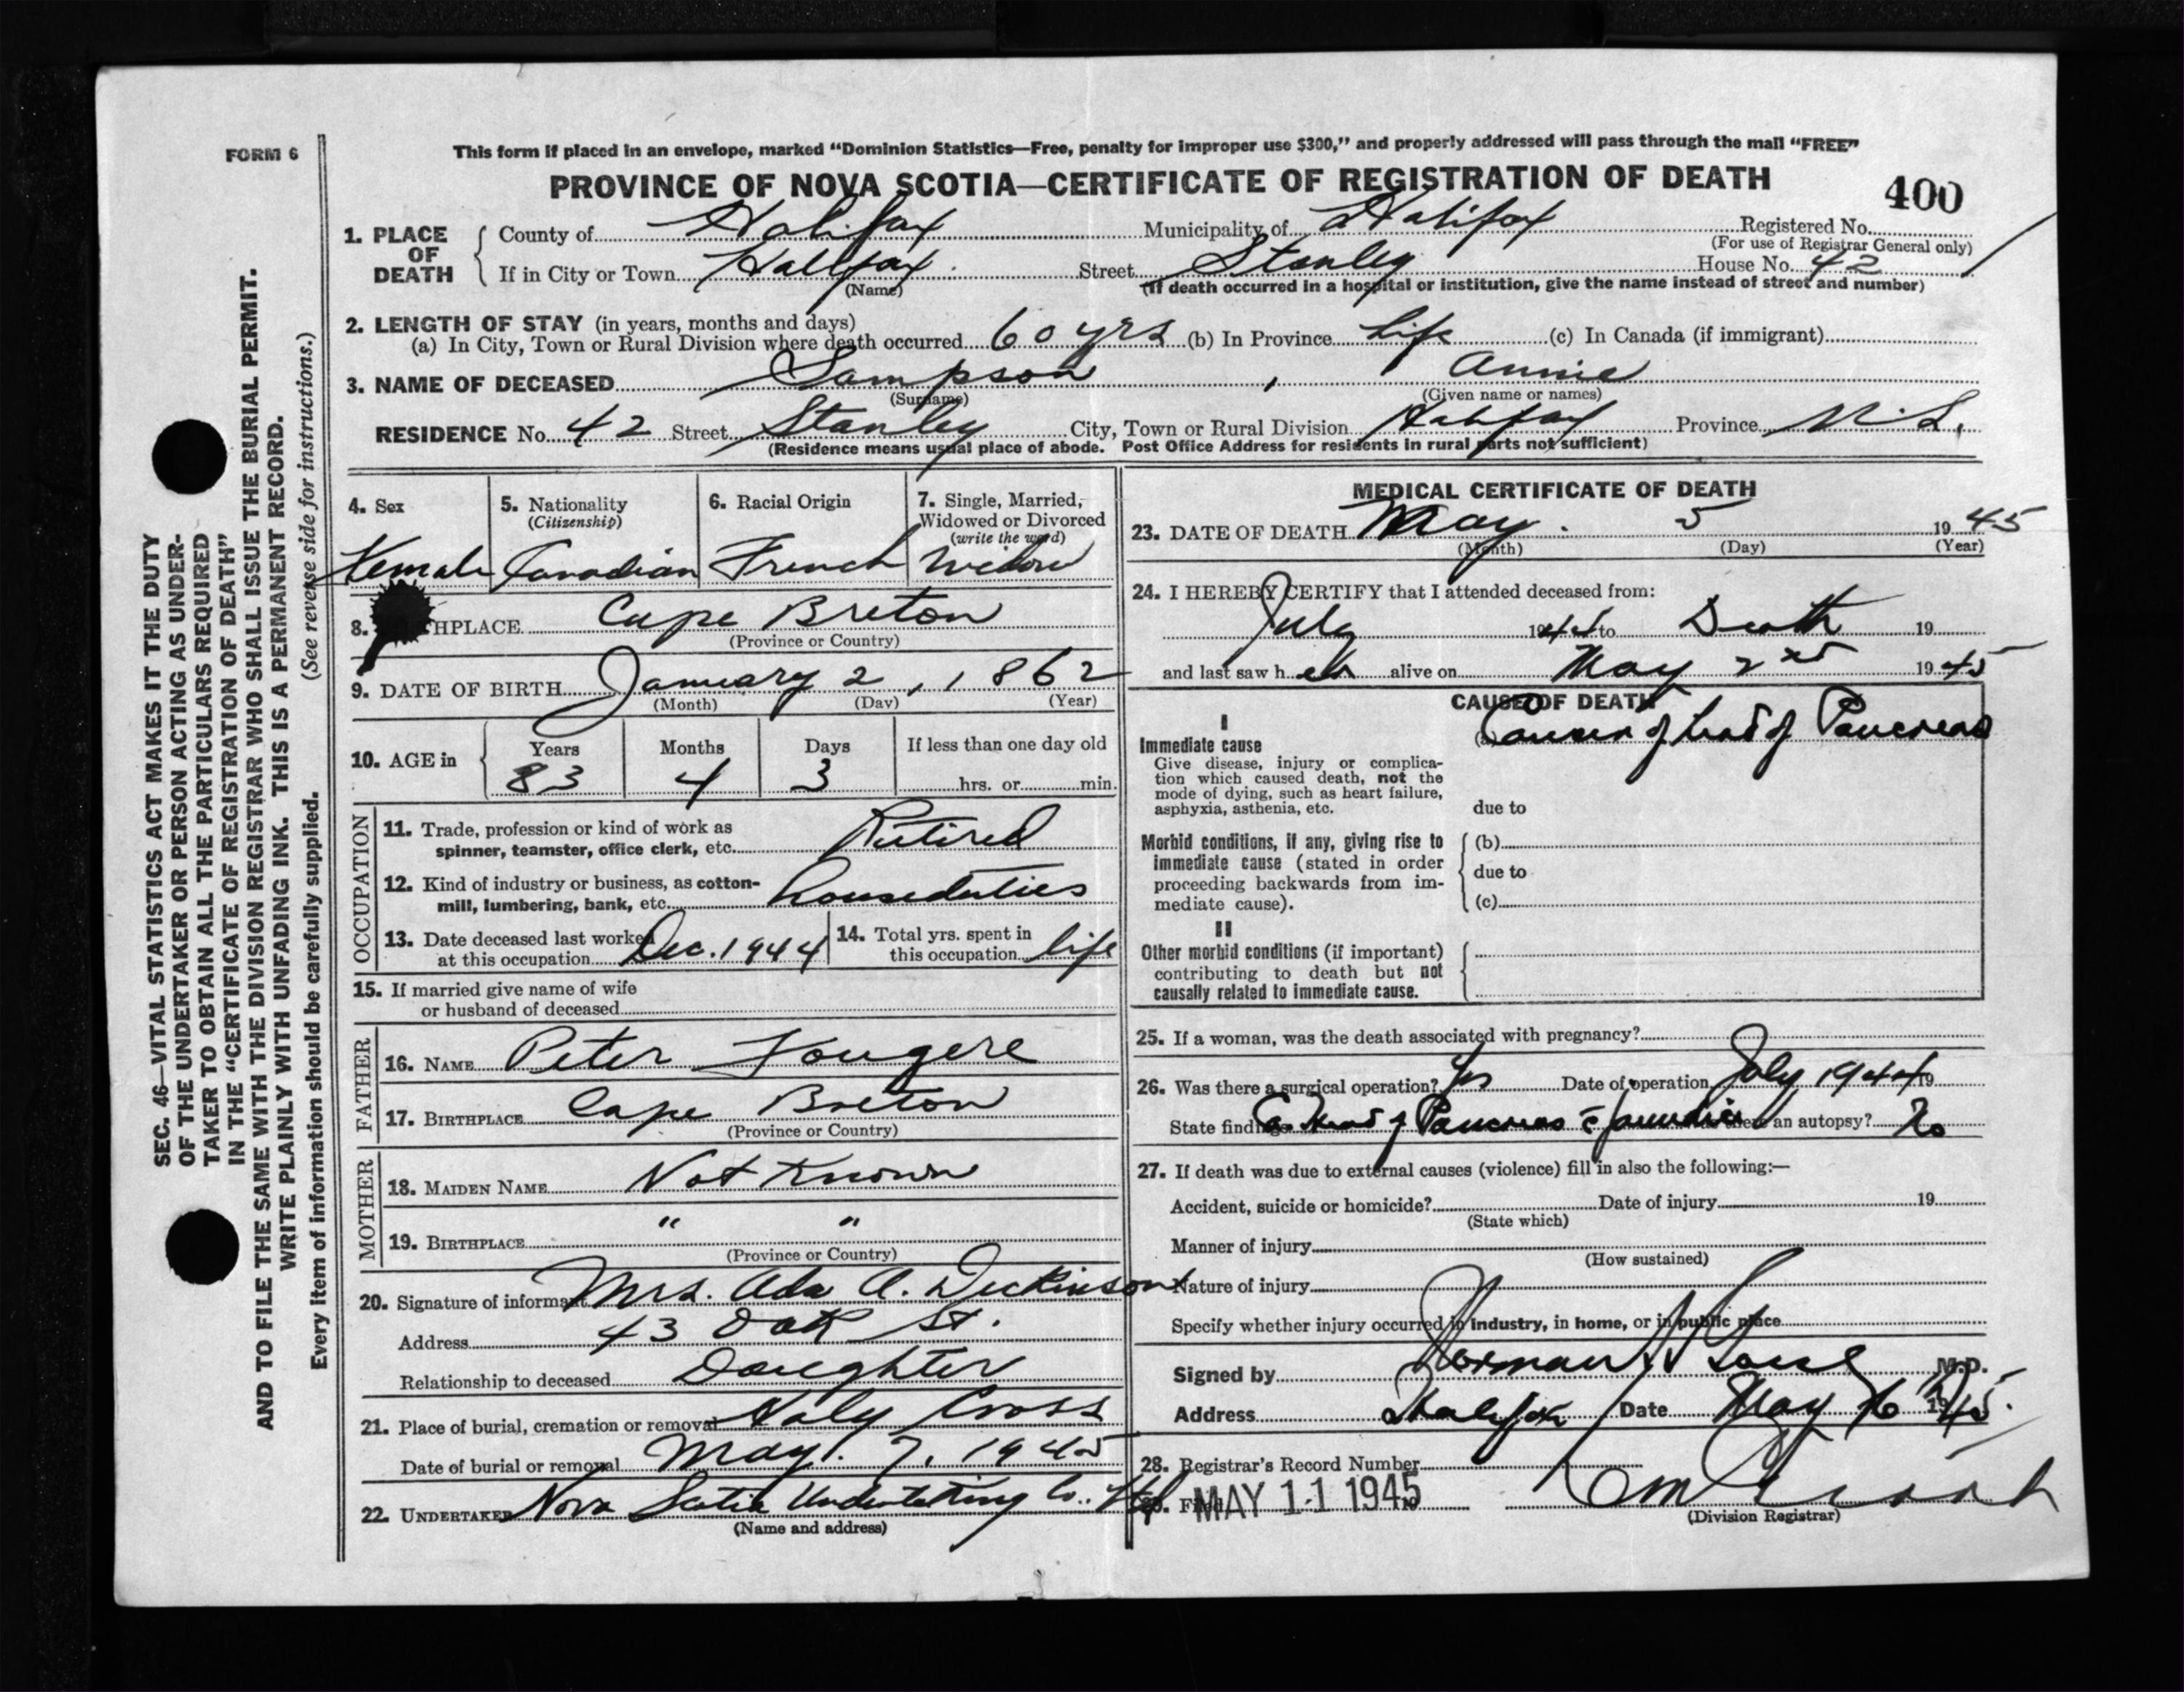 FORM 6
This form if placed in an envelope, marked "Dominion Statistics—Free, penalty for improper use $300," and properly addressed will pass through the mail "FREE"
PROVINCE OF NOVA SCOTIA—CERTIFICATE OF REGISTRATION OF DEATH
400
1. PLACE OF DEATH
County of Halifax Municipality of Halifax Registered No.
(For use of Registrar General only)
If in City or Town Halifax Street Stanley House No. 42
(Name) (If death occurred in a hospital or institution, give the name instead of street and number)
2. LENGTH OF STAY (in years, months and days)
(a) In City, Town or Rural Division where death occurred 60 yrs (b) In Province Life (c) In Canada (if immigrant)
3. NAME OF DECEASED Sampson , Annie
(Surname) (Given name or names)
RESIDENCE No. 42 Street Stanley City, Town or Rural Division Halifax Province N.S.
(Residence means usual place of abode. Post Office Address for residents in rural parts not sufficient)
4. Sex
Female
5. Nationality
(Citizenship)
Canadian
6. Racial Origin
French
7. Single, Married,
Widowed or Divorced
(write the word)
Widow
8. HPLACE Cape Breton
(Province or Country)
9. DATE OF BIRTH January 2, 1862
(Month) (Day) (Year)
10. AGE in
Years Months Days If less than one day old
83 4 3 hrs. or min.
OCCUPATION
11. Trade, profession or kind of work as
spinner, teamster, office clerk, etc. Retired
12. Kind of industry or business, as cotton-
mill, lumbering, bank, etc. houseduties
13. Date deceased last worked
at this occupation Dec. 1944
14. Total yrs. spent in
this occupation life
15. If married give name of wife
or husband of deceased
FATHER
16. NAME Peter Fougere
17. BIRTHPLACE Cape Breton
(Province or Country)
MOTHER
18. MAIDEN NAME Not Known
19. BIRTHPLACE " "
(Province or Country)
20. Signature of informant Mrs. Ada A. Dickinson
Address 43 Oak St.
Relationship to deceased Daughter
21. Place of burial, cremation or removal Holy Cross
Date of burial or removal May. 7, 1945
22. UNDERTAKER Nova Scotia Undertaking Co. Ltd
(Name and address)
MEDICAL CERTIFICATE OF DEATH
23. DATE OF DEATH May. 5 1945
(Month) (Day) (Year)
24. I HEREBY CERTIFY that I attended deceased from:
July 1944 to Death 19
and last saw her alive on May 2nd 1945
CAUSE OF DEATH
I
Immediate cause
Give disease, injury or complica-
tion which caused death, not the
mode of dying, such as heart failure,
asphyxia, asthenia, etc.
Cancer of head of Pancreas
due to
Morbid conditions, if any, giving rise to
immediate cause (stated in order
proceeding backwards from im-
mediate cause).
(b)
due to
(c)
II
Other morbid conditions (if important)
contributing to death but not
causally related to immediate cause.
25. If a woman, was the death associated with pregnancy?
26. Was there a surgical operation? Yes Date of operation July 1944 19
State findings Ca Head of Pancreas c̄ jaundice there an autopsy? No
27. If death was due to external causes (violence) fill in also the following:—
Accident, suicide or homicide? Date of injury 19
(State which)
Manner of injury
(How sustained)
Nature of injury
Specify whether injury occurred in industry, in home, or in public place
Signed by Norman M.D.
Address Halifax Date May 6 1945.
28. Registrar's Record Number
29. Filed MAY 11 1945 19
(Division Registrar)
SEC. 46—VITAL STATISTICS ACT MAKES IT THE DUTY
OF THE UNDERTAKER OR PERSON ACTING AS UNDER-
TAKER TO OBTAIN ALL THE PARTICULARS REQUIRED
IN THE "CERTIFICATE OF REGISTRATION OF DEATH"
AND TO FILE THE SAME WITH THE DIVISION REGISTRAR WHO SHALL ISSUE THE BURIAL PERMIT.
WRITE PLAINLY WITH UNFADING INK. THIS IS A PERMANENT RECORD.
Every item of information should be carefully supplied. (See reverse side for instructions.)